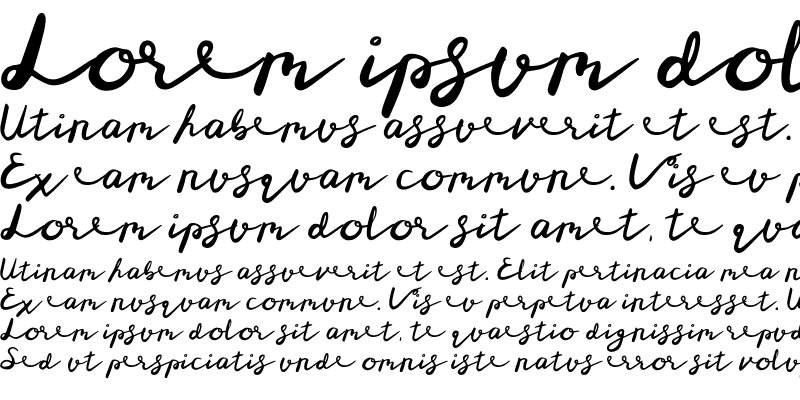 Lorem ipsum dol
Utinam habemus assueverit et est.
Ex eam nusquam commune. Vis eu p
Lorem ipsum dolor sit amet, te qu
Utinam habemus assueverit et est. Elit pertinacia mea n
Ex eam nusquam commune. Vis eu perpetua interesset. U
Lorem ipsum dolor sit amet, te quaestio dignissim repud
Sed ut perspiciatis unde omnis iste natus error sit volu